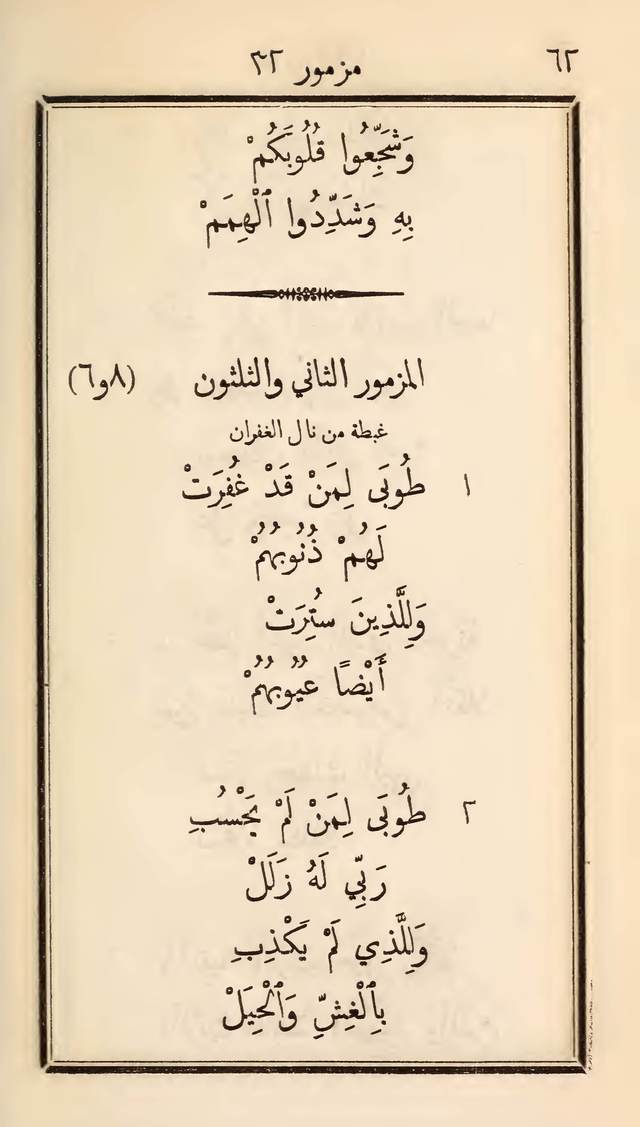 ٦٢ مزمور ٣٢
وَشَجِّعُوا قُلُوبَكُمْ
بِهِ وَشَدِّدُوا ٱلْهِمَمْ
المزمور الثاني والثلثون (٨و٦)
غبطة من نال الغفران
١ طُوبَى لِمَنْ قَدْ غُفِرَتْ
لَهُمْ ذُنُوبُهُمْ
وَلِلَّذِينَ سُتِرَتْ
أَيْضًا عُيُوبُهُمْ
٢ طُوبَى لِمَنْ لَمْ يَحْسُبِ
رَبِّي لَهُ زَلَلْ
وَلِلَّذِي لَمْ يَكْذِبِ
بِٱلْغِشِّ وَٱلْحِيَلْ